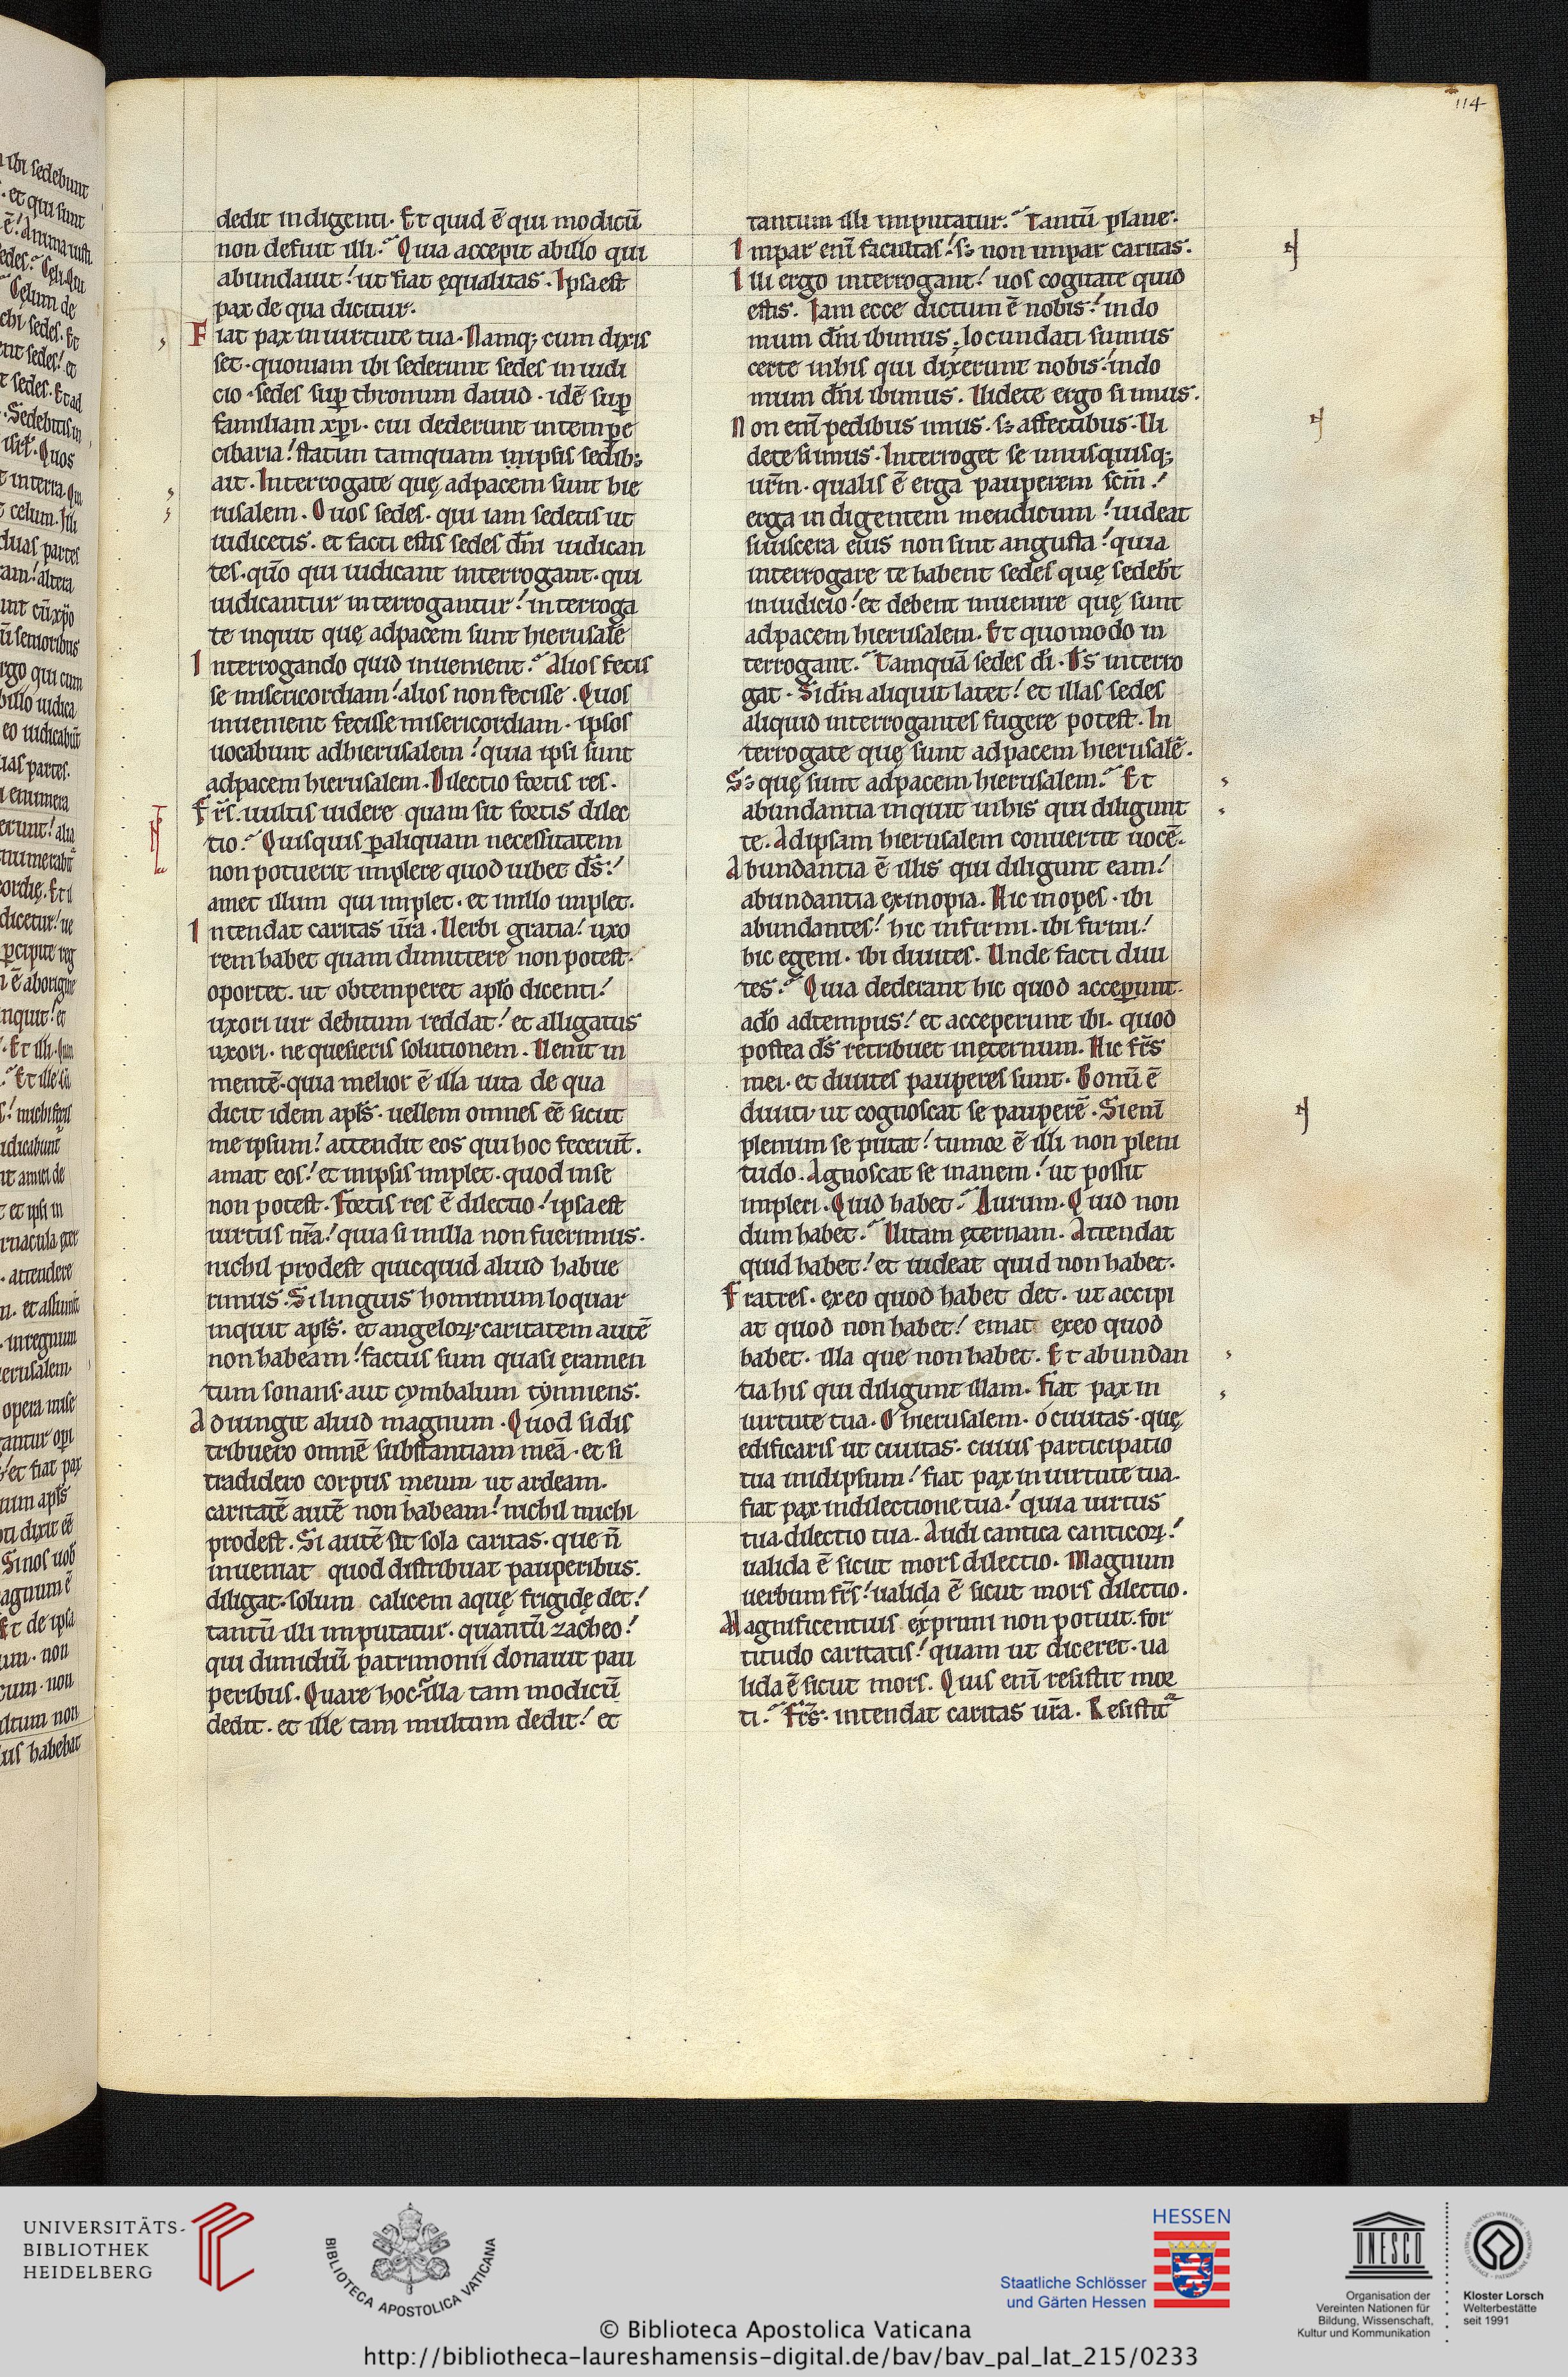 114
dedit indigenti. Et quid ē qui modicū
non defuit illi? Quia accepit abillo qui
abundauit! ut fiat ęqualitas. Ipsa est
pax de qua dicitur.
Fiat pax inuirtute tua. Namq; cum dixis
set. quoniam ibi sederunt sedes iniudi
cio. sedes sup̄ thronum dauid. idē sup̄
familiam xp̄i. cui dederunt intempe
cibaria! statim tamquam inipsis sedib;
ait. Interrogate quę adpacem sunt hie
rusalem. O uos sedes. qui iam sedetis ut
iudicetis. et facti estis sedes dn̄i iudican
tes. qūo qui iudicant interrogant. qui
iudicantur interrogantur! interroga
te inquit quę adpacem sunt hierusalē
Interrogando quid inuenient? Alios fecis
se misericordiam! alios non fecisse. Quos
inuenient fecisse misericordiam. ipsos
uocabunt adhierusalem! quia ipsi sunt
adpacem hierusalem. Dilectio fortis res.
Fr̄s. uultis uidere quam sit fortis dilec
tio? Quisquis p̄ aliquam necessitatem
non potuerit implere quod iubet ds̄!
amet illum qui implet. et inillo implet.
Intendat caritas ur̄a. Uerbi gratia! uxo
rem habet quam dimittere non potest.
oportet. ut obtemperet apl̄o dicenti!
uxori uir debitum reddat! et alligatus
uxori. ne quesieris solutionem. Uenit in
mentē. quia melior ē illa uita de qua
dicit idem apl̄s. uellem omnes eē sicut
me ipsum! attendit eos qui hoc fecerūt.
amat eos! et inipsis implet. quod inse
non potest. Fortis res ē dilectio! ipsa est
uirtus nr̄a! quia si inilla non fuerimus.
nichil prodest quicquid aliud habue
rimus. Si linguis hominum loquar
inquit apl̄s. et angeloꝝ. caritatem autē
non habeam! factus sum quasi ęramen
tum sonans. aut cymbalum tynniens.
Adiungit aliud magnum. Quod si dis
tribuero omnē substantiam meā. et si
tradidero corpus meum ut ardeam.
caritatē autē non habeam! nichil michi
prodest. Si autē sit sola caritas. que n̄
inueniat quod distribuat pauperibus.
diligat. solum calicem aquę frigidę det!
tantū illi imputatur. quantū zacheo!
qui dimidiū patrimonii donauit pau
peribus. Quare hoc? illa tam modicū
dedit. et ille tam multum dedit! et
tantum illi imputatur? Tantū plane.
Impar enī facultas! s; non impar caritas.
Illi ergo interrogant! uos cogitate quid
estis. Iam ecce dictum ē nobis! indo
mum dn̄i ibimus. Iocundati sumus
certe inhis qui dixerunt nobis! indo
mum dn̄i ibimus. Uidete ergo si imus.
Non enī pedibus imus. s; affectibus. Ui
dete si imus. Interroget se unusquisq;
ur̄m. qualis ē erga pauperem scm̄!
erga indigentem mendicum! uideat
si uiscera eius non sint angusta! quia
interrogare te habent sedes quę sedebt̄
iniudicio! et debent inuenire quę sunt
adpacem hierusalem. Et quomodo in
terrogant? Tamquā sedes dī. Ds̄ interro
gat. Si dm̄ aliquit latet! et illas sedes
aliquid interrogantes fugere potest. In
terrogate quę sunt adpacem hierusalē.
S; quę sunt adpacem hierusalem? Et
abundantia inquit inhis qui diligunt
te. Adipsam hierusalem conuertit uocē.
Abundantia ē illis qui diligunt eam!
abundantia exinopia. Hic inopes. ibi
abundantes! hic infirmi. ibi firmi!
hic egeni. ibi diuites. Unde facti diui
tes? Quia dederant hic quod acceperunt
adō adtempus! et acceperunt ibi. quod
postea ds̄ retribuet inęternum. Hic fr̄s
mei. et diuites pauperes sunt. Bonū ē
diuiti ut cognoscat se pauperē. Si enī
plenum se putat! tumor ē illi non pleni
tudo. Agnoscat se inanem! ut possit
impleri. Quid habet? Aurum. Quid non
dum habet? Uitam ęternam. Attendat
quid habet! et uideat quid non habet.
Fratres. exeo quod habet det. ut accipi
at quod non habet! emat exeo quod
habet. illa que non habet. Et abundan
tia his qui diligunt illam. Fiat pax in
uirtute tua. O hierusalem. o ciuitas. quę
edificaris ut ciuitas. cuius participatio
tua inidipsum! fiat pax inuirtute tua.
fiat pax indilectione tua! quia uirtus
tua. dilectio tua. Audi cantica canticoꝝ!
ualida ē sicut mors dilectio. Magnum
uerbum fr̄s! ualida ē sicut mors dilectio.
Magnificentius exprimi non potuit. for
titudo caritatis! quam ut diceret. ua
lida ē sicut mors. Quis enī resistit mor
ti? Fr̄s. intendat caritas ur̄a. Resistit
UNIVERSITÄTS-
BIBLIOTHEK
HEIDELBERG
BIBLIOTECA APOSTOLICA VATICANA
HESSEN
Staatliche Schlösser
und Gärten Hessen
UNESCO
Organisation der
Vereinten Nationen für
Bildung, Wissenschaft,
Kultur und Kommunikation
Kloster Lorsch
Welterbestätte
seit 1991
© Biblioteca Apostolica Vaticana
http://bibliotheca-laureshamensis-digital.de/bav/bav_pal_lat_215/0233